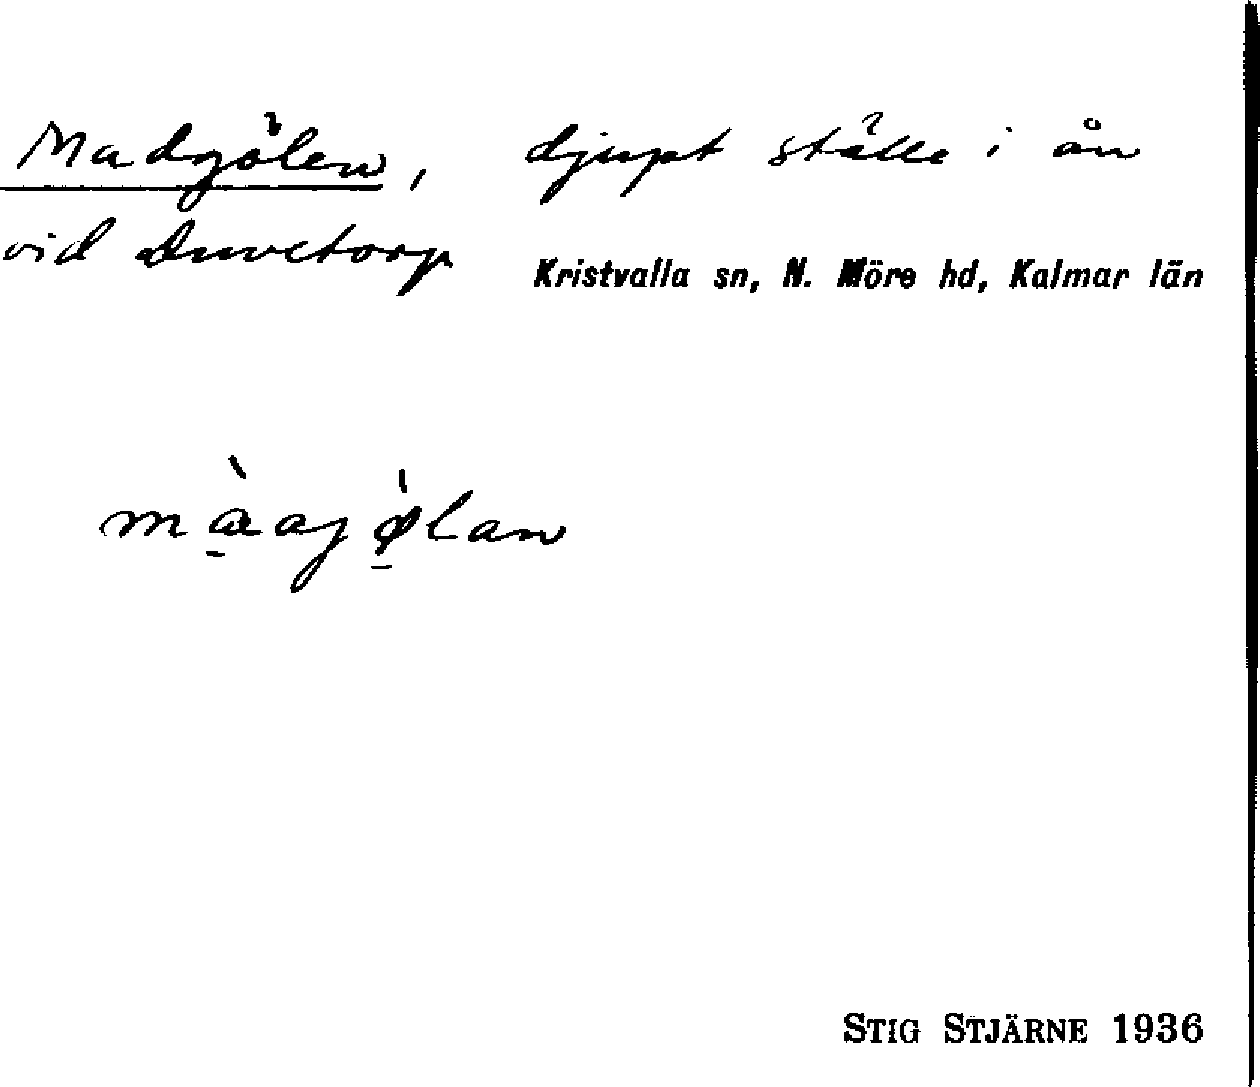 Madgölen, djupt ställe i ån
vid Duvetorp
Kristvalla sn, N. Möre hd, Kalmar län
STIG STJÄRNE 1936